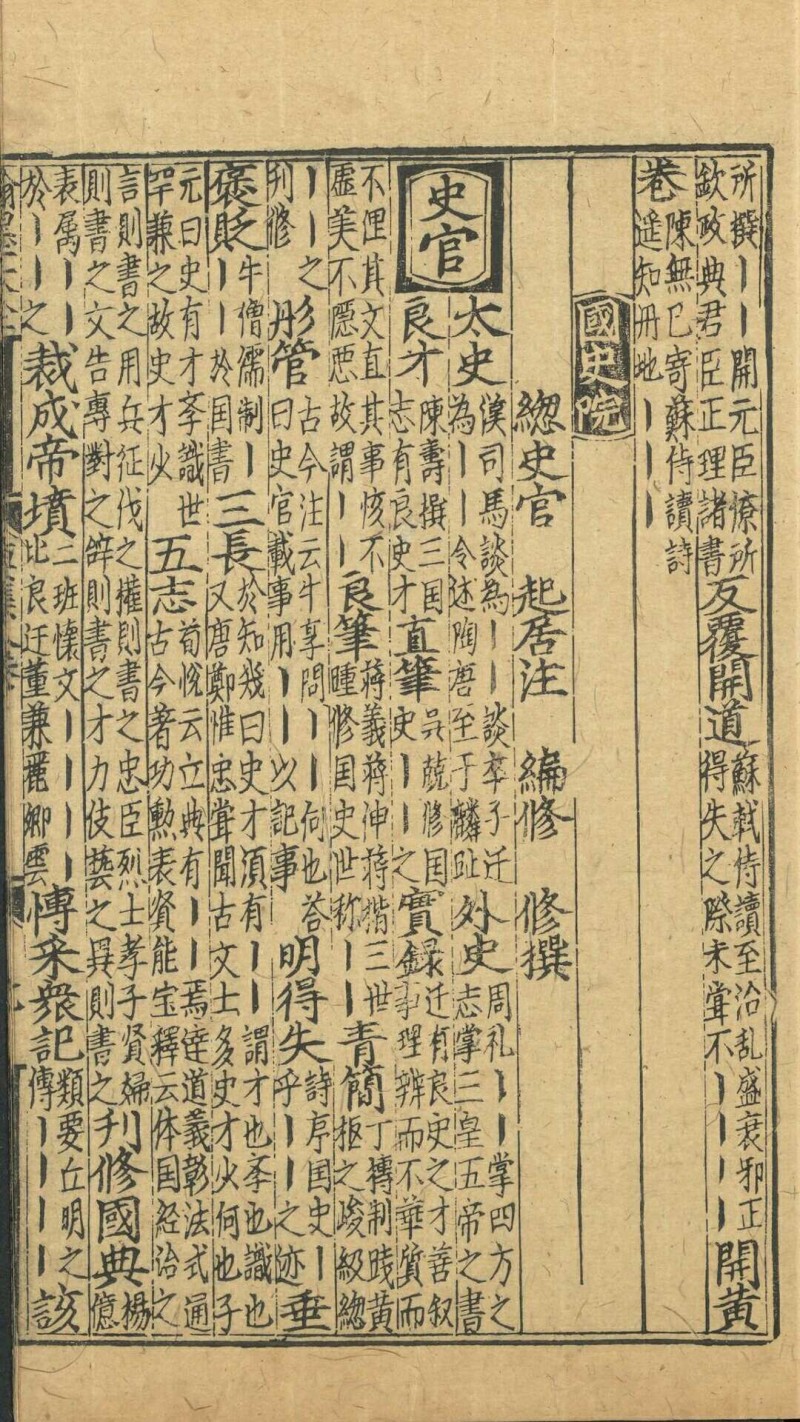 所撰丨丨開元臣僚所
欽政典君臣正理諸書
反覆開道
蘇軾侍讀至治乱盛衰邪正
得失之際未甞不丨丨丨丨
開黃
卷
陳無已寄蘇侍讀詩
遥知丹地丨丨丨
國史院
緫史官 起居注 編修 修撰
史官
太史
漢司馬談為丨丨談卒子迁
為丨丨令述陶唐至于麟趾
外史
周礼丨丨掌四方之
志掌三皇五帝之書
良才
陳壽撰三国
志有良史才
直筆
吳兢修国
史丨丨之
實録
迁有良史之才善叙
事理辨而不華質而
不俚其文直其事核不
虚美不隠悪故謂丨丨
良筆
蒋義蒋伸蒋揩三世
踵修国史世称丨丨
青簡
丁摶制賎黃
枢之峻級緫
丨丨之
刋修
彤管
古今注云牛享問丨丨何也荅
曰史官載事用丨丨以記事
明得失
詩序国史丨
乎丨丨之迹
垂
褒貶
牛僧儒制丨
丨於国書
三長
於知幾曰史才湏有丨丨謂才也斈也識也
又唐鄭惟忠甞聞古文士多史才火何也子
元曰史有才斈識世
罕兼之故史才火
五志
荀恱云立典有丨丨焉逹道義彰法式通
古今著功勲表賢能宝釋云体国経治之
言則書之用兵征伐之權則書之忠臣烈士孝子賢婦
則書之文告專對之辝則書之才力伎藝之異則書之
刋修國典
楊
億
表属丨丨
於丨丨之
裁成帝墳
二班懐文丨丨丨丨
比良迁董兼麗卿雲
博采衆記
類要丘明之
傳丨丨丨丨
該